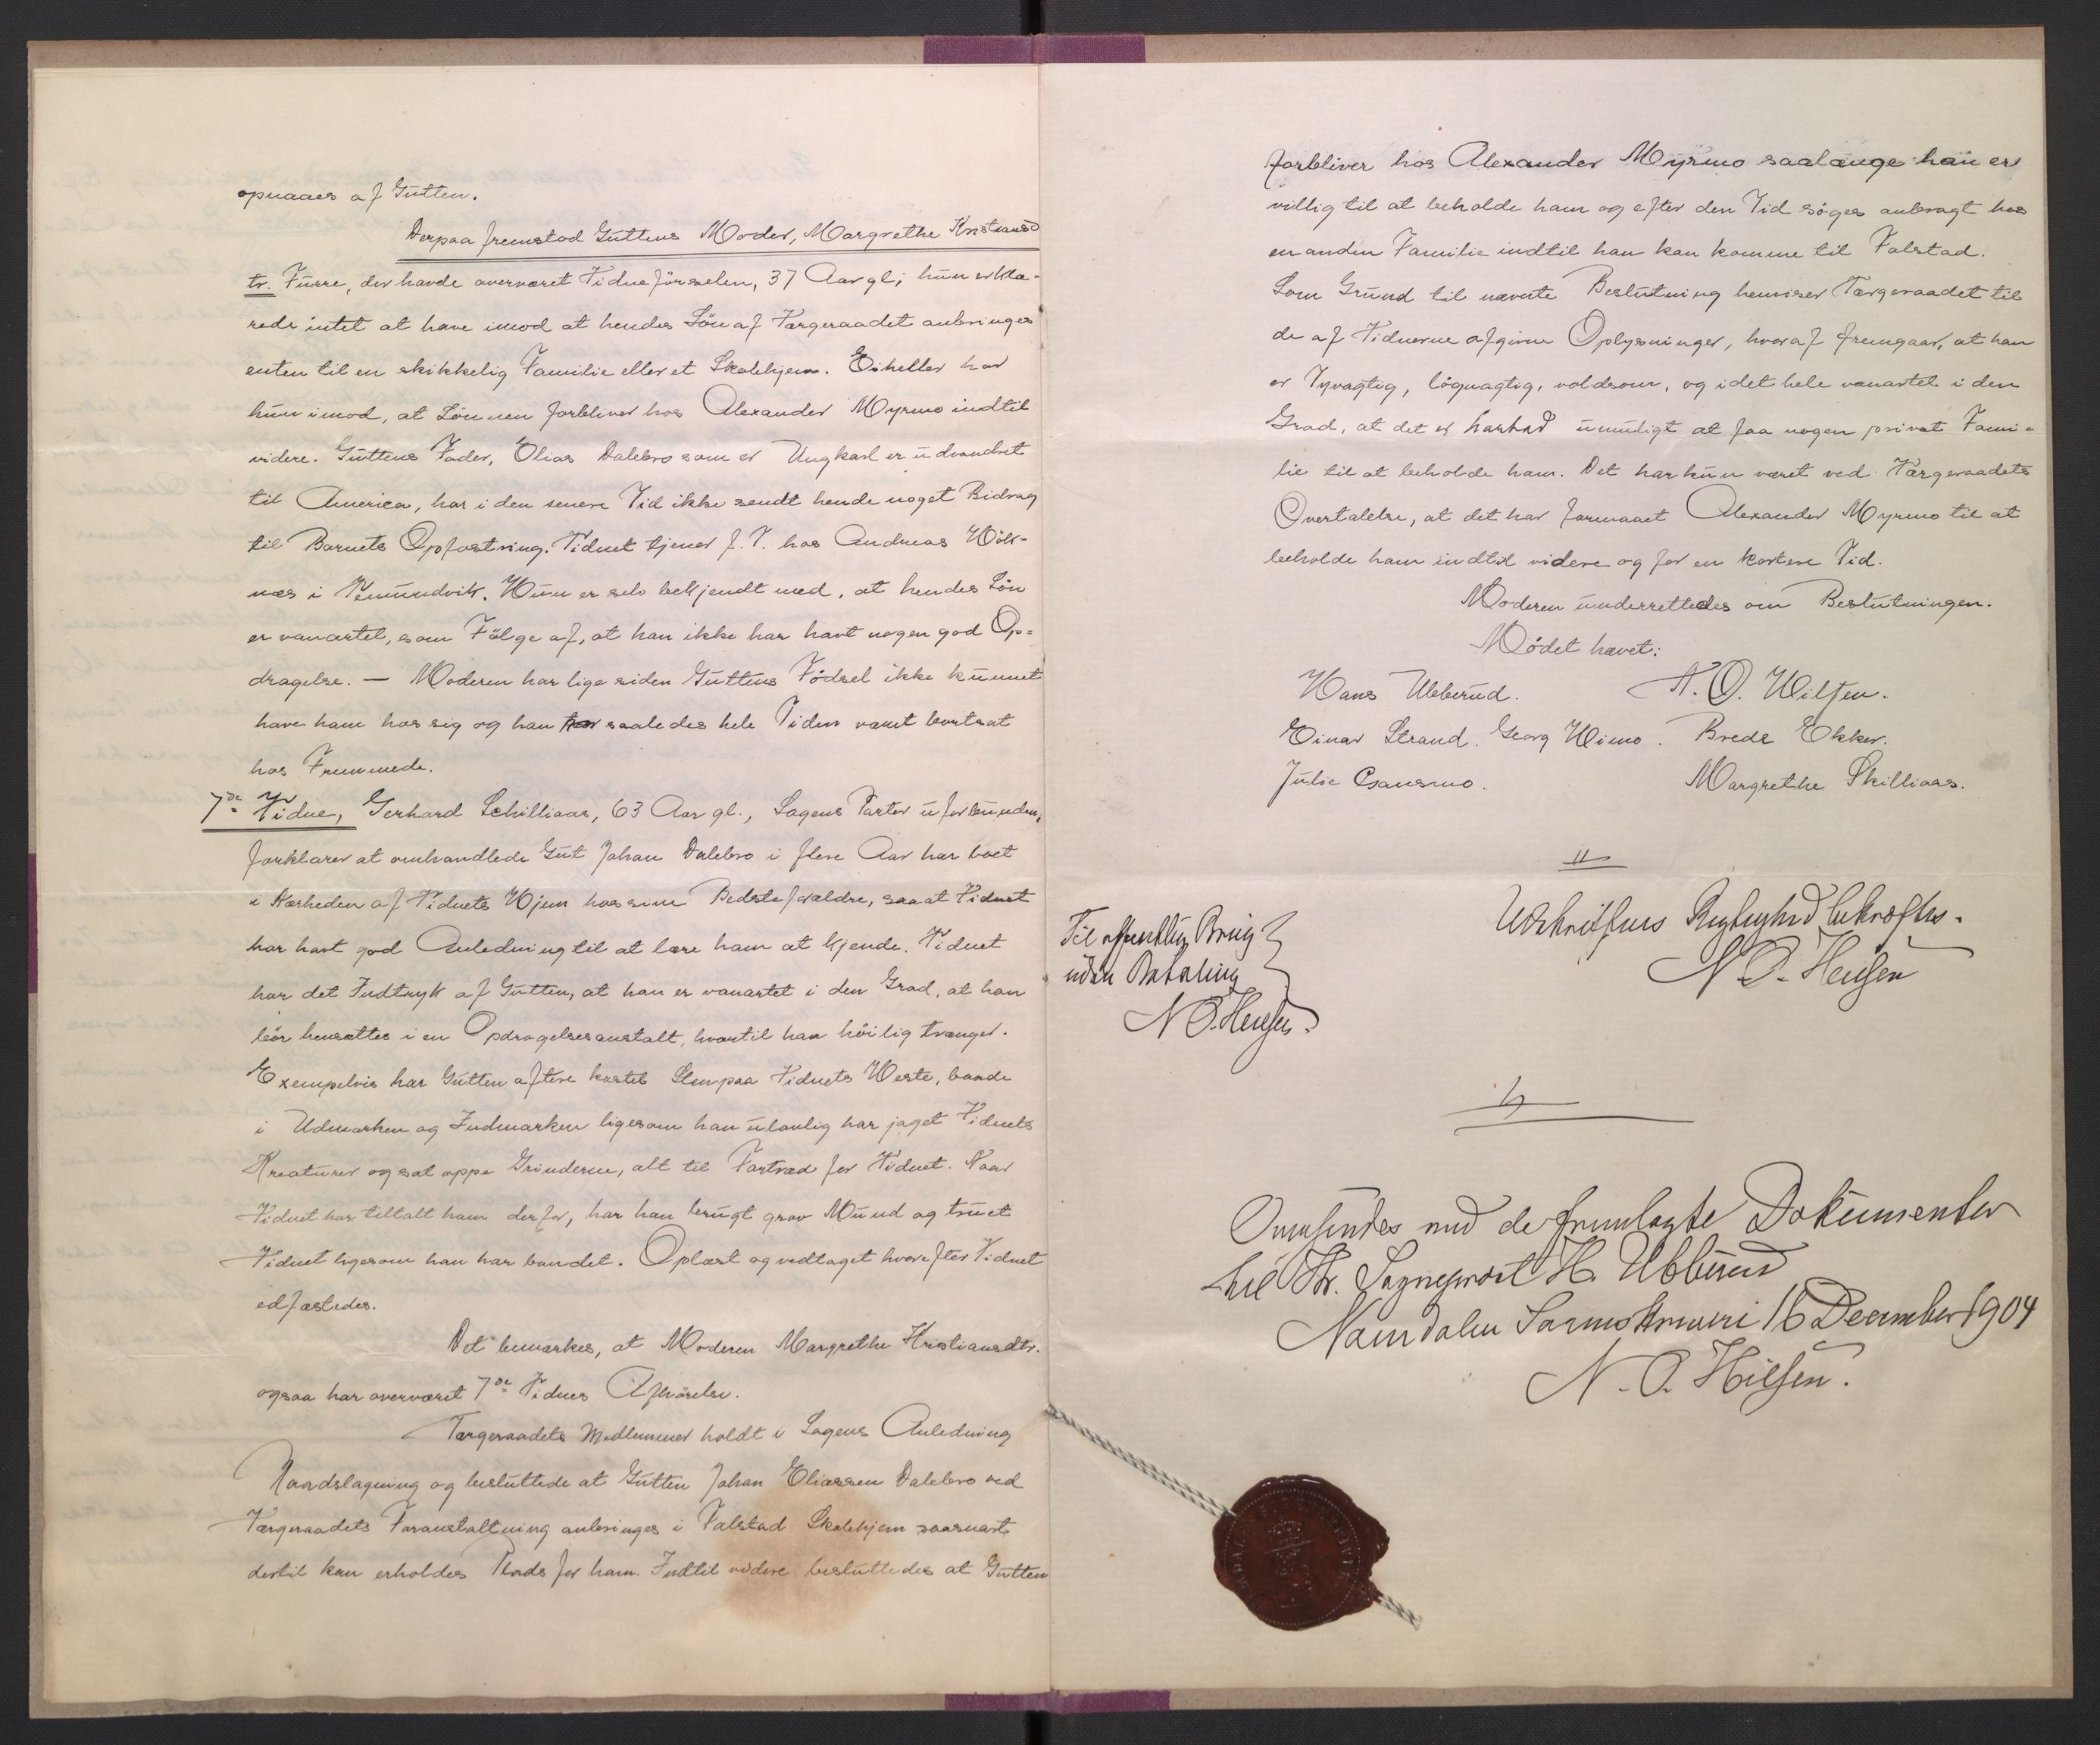 opnaaes af Gutten.
Derpaa fremstod Guttens Moder, Margrethe Kristiansd
tr. Furre, der havde overværet Vidneførselen, 37 Aar gl; hun erklæ-
rede intet at have imod at hendes Søn af Værgeraadet anbringes
enten til en skikkelig Familie eller et Skolehjem. Eiheller har
hun imod, at Sønnen forbliver hos Alexander Myrmo indtil
videre. Guttens Fader, Elias Dalebro som er Ungkarl er udvandret
til America, har i den senere Tid ikke sendt hende noget Bidrag
til Barnets Opfostring. Vidnet tjener f. T. hos Andreas Høk-
næs i Vemundvik. Hun er selv bekjendt med, at hendes Søn
er vanartet, som Følge af, at han ikke har havt nogen god Op=
dragelse. — Moderen har lige siden Guttens Fødsel ikke kunnet
have ham hos sig og han har saaledes hele Tiden været bortsat
hos Fremmede.
7de Vidne, Gerhard Schilliaas, 63 Aar gl., Sagens Parter uforbunden,
forklarer at omhandlede Gut Johan Dalebro i flere Aar har boet
i Nærheden af Vidnets Hjem hos sine Bedsteforældre, saa at Vidnet
har havt god Anledning til at lære ham at kjende. Vidnet
har det Indtryk af Gutten, at han er vanartet i den Grad, at han
bør hensættes i en Opdragelsesanstalt, hvortil han høilig trænger.
Exempelvis har Gutten oftere kastet Sten paa Vidnets Heste, baade
i Udmarken og Indmarken ligesom han ulovlig har jaget Vidnets
Kreaturer og sat oppe Grinderne, alt til Fortræd for Vidnet. Naar
Vidnet har tiltalt ham derfor, har han brugt grov Mund og truet
Vidnet ligesom han har bandet. Oplæst og vedtaget hvorefter Vidnet
edfæstedes.
Det bemærkes, at Moderen Margrethe Kristiansdtr.
ogsaa har overværet 7de Vidnes Afhørelse.
Værgeraadets Medlemmer holdt i Sagens Anledning
Raadslagning og besluttede at Gutten Johan Eliassen Dalebro ved
Værgeraadets Foranstaltning anbringes i Falstad Skolehjem saasnart
dertil kan erholdes Plads for ham. Indtil videre besluttedes at Gutten
forbliver hos Alexander Myrmo saalænge han er
villig til at beholde ham og efter den Tid søges anbragt hos
en anden Familie indtil han kan komme til Falstad.
Som Grund til nævnte Beslutning henviser Værgeraadet til
de af Vidnerne afgivne Oplysninger, hvoraf fremgaar, at han
er Tyvagtig, løgnagtig, voldsom, og i det hele vanartet i den
Grad, at det er harhad umuligt at faa nogen privat Fami=
lie til at beholde ham. Det har kun været ved Værgeraadets
Overtalelse, at det har formaaet Alexander Myrmo til at
beholde ham indtil videre og for en kortere Tid.
Moderen underrettedes om Beslutningen.
Mødet hævet:
Hans Ubberud. N. O. Hilsen.
Einar Strand. Georg Himo. Brede Ekker.
Julie Osansmo. Margrethe Skilliaas.
Udskriftens Rigtighed bekræftes.
N. O. Hilsen
Til offentlig Brug
uden Betaling
N O. Hilsen.
Omsendes med de fremlagte Dokumenter
til Hr. Sogneprest H. Ubberud
Namdalen Sorenskriveri 16 December 1904
N. O. Hilsen.